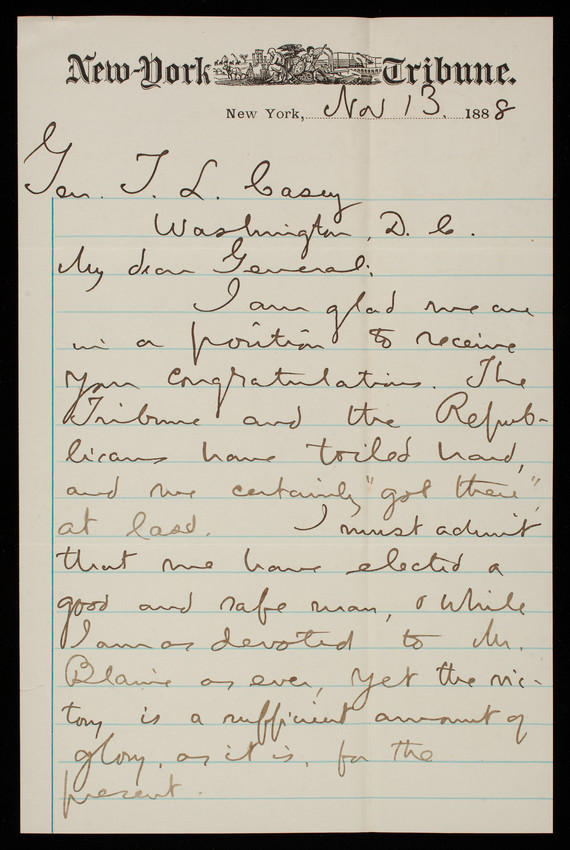 New-York Tribune.
New York, Nov 13. 1888
Gen. T. L. Casey
Washington, D. C.
My dear General:
I am glad we are
in a position to receive
your congratulations. The
Tribune and the Repub-
licans have toiled hard,
and we certainly "got there",
at last. I must admit
that we have elected a
good and safe man, & while
I am as devoted to Mr.
Blaine as ever, yet the vic-
tory is a sufficient amount of
glory, as it is, for the
present.